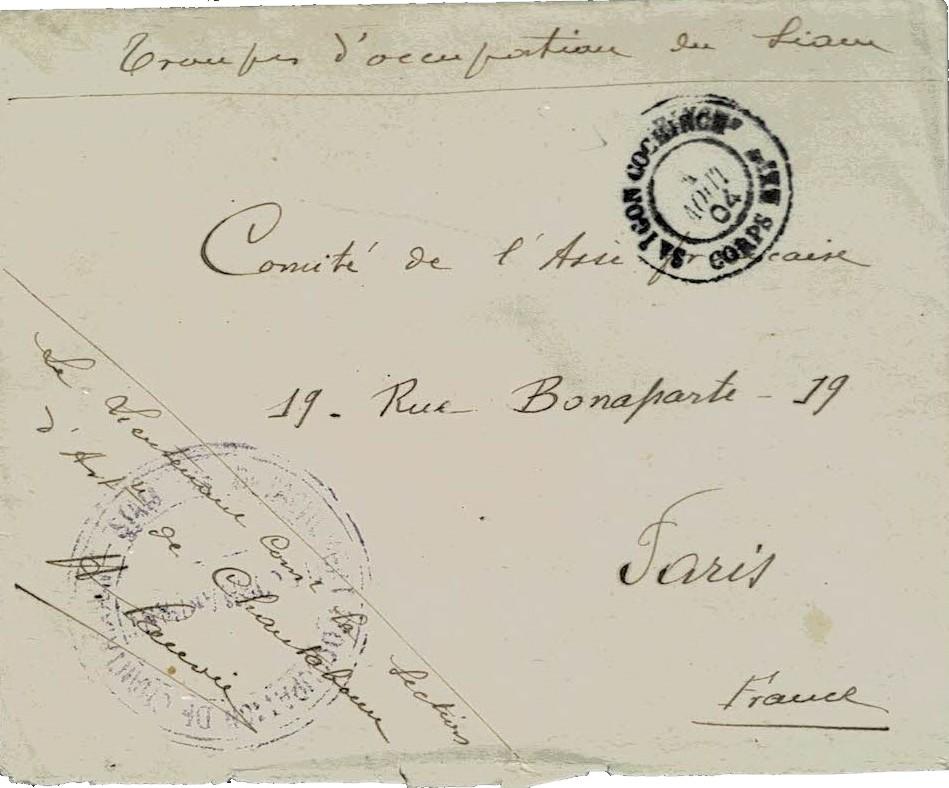 Troupes d'occupation du Siam
SAIGON COCHINCHᴱ
CORPS
AOUT
04
Comité de l'Asie française
19 - Rue Bonaparte - 19
Paris
France
Le Lieutenant Comᵗ la Section
d'Artⁱᵉ de Chantaboun
DE